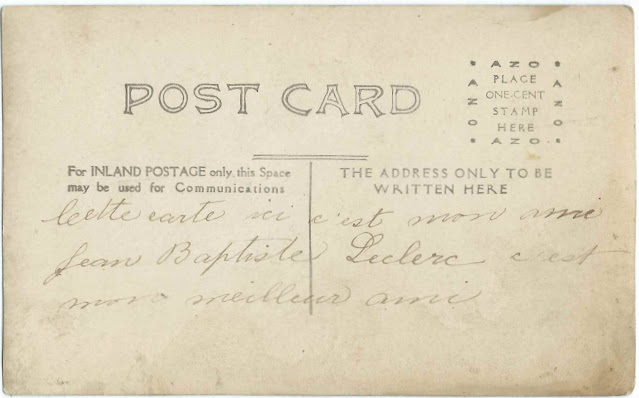 POST CARD
AZO
AZO
PLACE
ONE-CENT
STAMP
HERE
AZO
AZO
For INLAND POSTAGE only, this Space
may be used for Communications
THE ADDRESS ONLY TO BE
WRITTEN HERE
Cette carte ici c'est mon ami
Jean Baptiste Leclerc c'est
mon meilleur ami